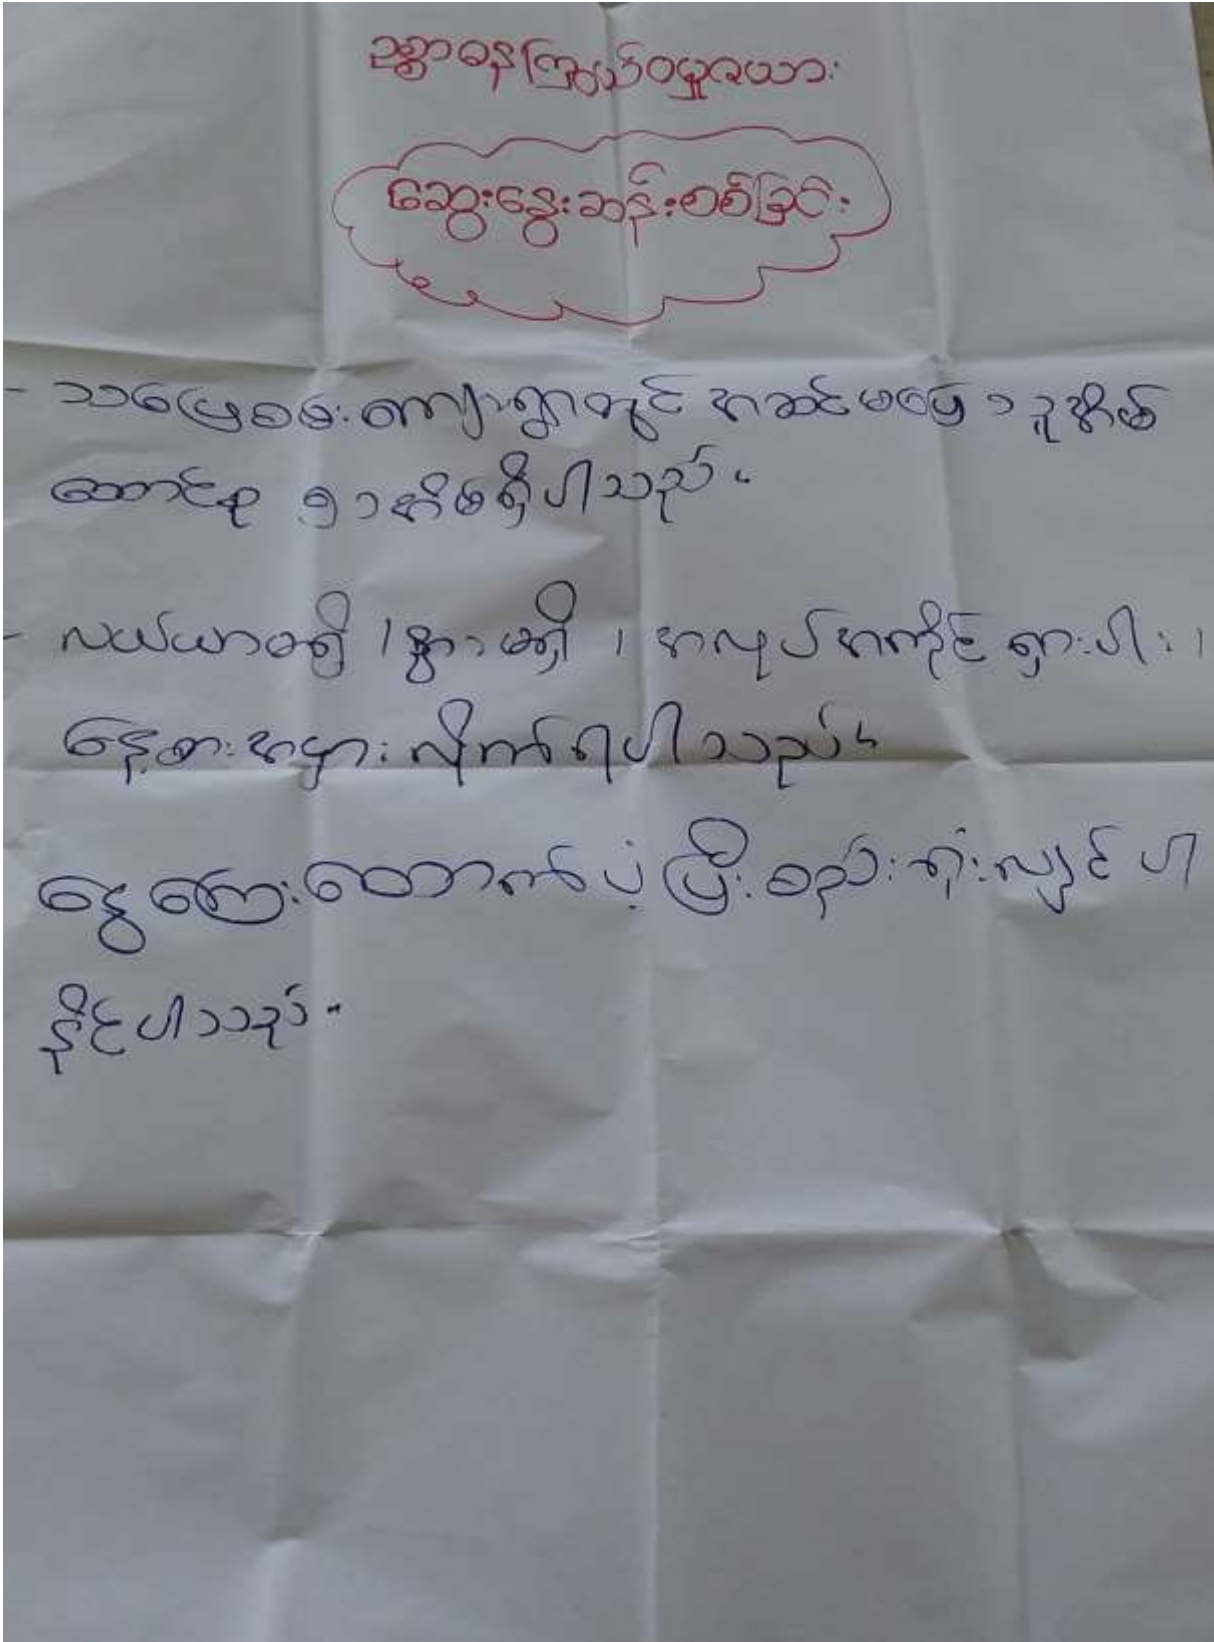 ဥစ္စာဓနကြွယ်ဝမှုဇယား
ဆွေးနွေးဆန်းစစ်ခြင်း
- သပြေစမ်းကျေးရွာတွင် အဆင်မပြေ သူအိမ်
ထောင်စု ၅၁ အိမ်ရှိပါသည်။
- လယ်ယာမရှိ၊ နွားမရှိ၊ အလုပ်အကိုင် ရှားပါး၊
နေ့စားအငှား လိုက်ရပါသည်။
ငွေကြေးထောက်ပံ့ပြီး စည်းရုံးလျှင် ပါ
နိုင်ပါသည်။